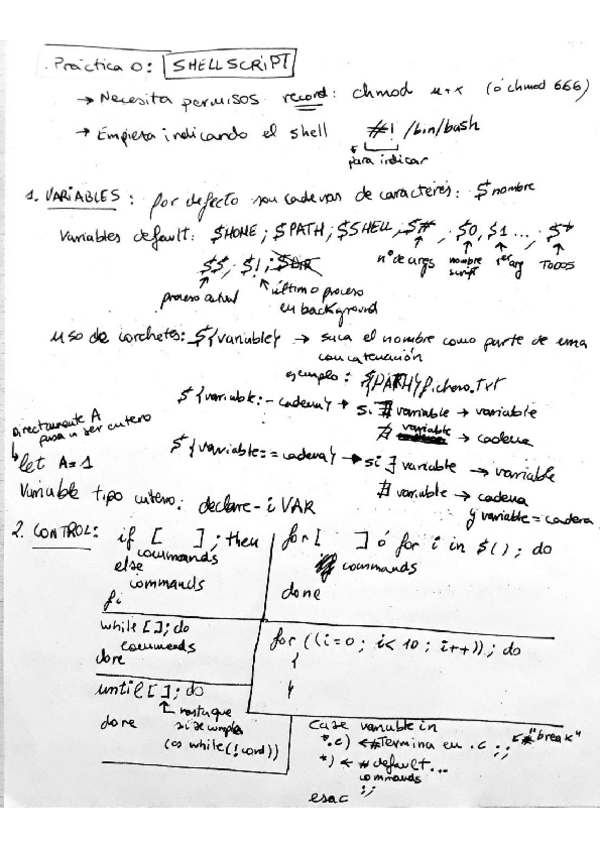 Práctica 0: SHELLSCRIPT
→ Necesita permisos record: chmod u+x (ó chmod 666)
→ Empieza indicando el shell #! /bin/bash
para indicar
1. VARIABLES: por defecto son cadenas de caracteres: $nombre
Variables default: $HOME; $PATH; $SHELL, $#, $0, $1 ..., $*
nº de args nombre script 1er arg TODOS
$$, $!; $DIR
proceso actual último proceso
en background
uso de corchetes: ${variable} → saca el nombre como parte de una
concatenación
ejemplo: ${PATH}fichero.txt
${variable:-cadena} → si ∃ variable → variable
∄ variable → cadena
${variable:=cadena} → si ∃ variable → variable
∄ variable → cadena
y variable = cadena
Directamente A
pasa a ser entero
let A=1
Variable tipo entero: declare -i VAR
2. CONTROL: if [ ]; then
commands
else
commands
fi
for [ ] ó for i in $(); do
commands
done
while []; do
commands
done
for ((i=0; i<10; i++)); do
{
}
until []; do
hasta que
si se cumpla
(os while(!cond))
done
case variable in
*.c) ← #Termina en .c ;; ← # "break"
*) ← # default...
commands
;;
esac